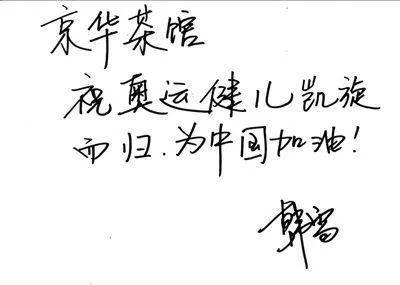 京华茶馆
祝奥运健儿凯旋
而归.为中国加油!
韩雪